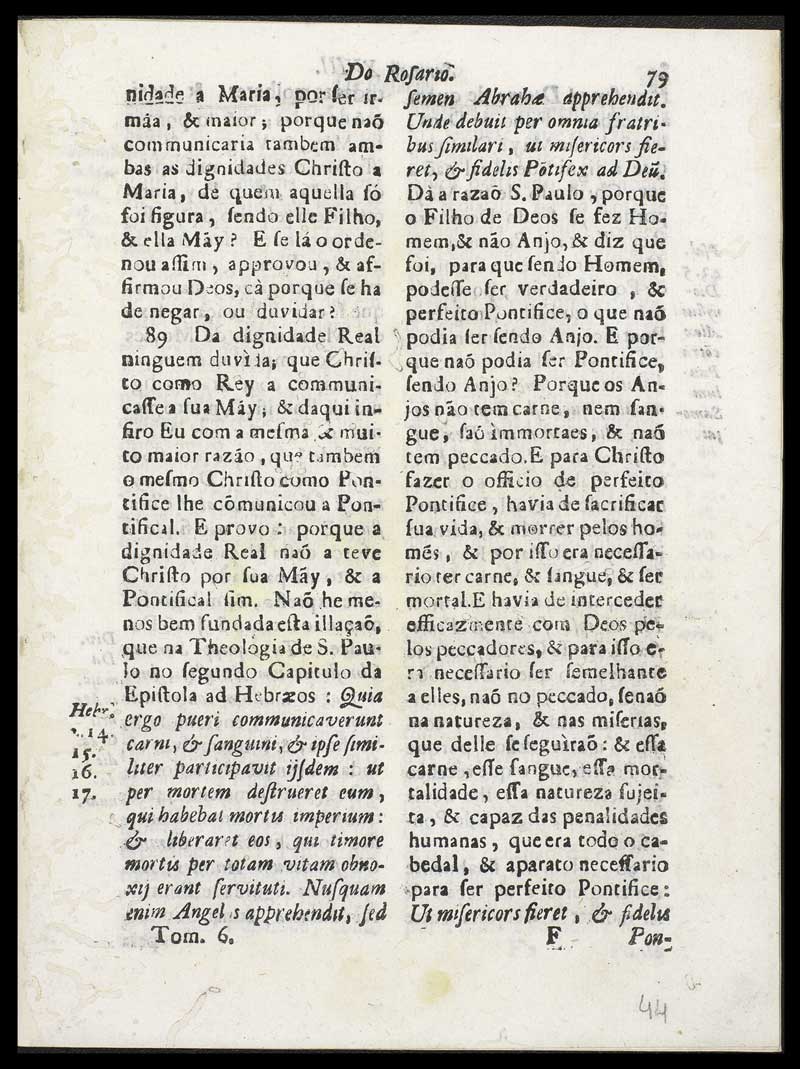 Do Roſario.
79
nidade a Maria, por ſer ir-
máa, & maior; porque naõ
communicaria tambem am-
bas as dignidades Chriſto a
Maria, de quem aquella ſó
foi figura, ſendo elle Filho,
& ella Mãy? E ſe lá o orde-
nou aſſim, approvou, & af-
firmou Deos, cà porque ſe ha
de negar, ou duvidar?
89 Da dignidade Real
ninguem duvìda; que Chriſ-
to como Rey a communi-
caſſe a ſua Mãy; & daqui in-
firo Eu com a meſma & mui-
to maior razão, que tambem
o meſmo Chriſto como Pon-
tifice lhe cõmunicou a Pon-
tifical. E provo: porque a
dignidade Real naõ a teve
Chriſto por ſua Mãy, & a
Pontifical ſim. Naõ he me-
nos bem fundada eſta illaçaõ,
que na Theologia de S. Pau-
lo no ſegundo Capitulo da
Epiſtola ad Hebræos: Quia
ergo pueri communicaverunt
carni, & ſanguini, & ipſe ſimi-
liter participavit ijſdem: ut
per mortem deſtrueret eum,
qui habebat mortis imperium:
& liberaret eos, qui timore
mortis per totam vitam obno-
xij erant ſervituti. Nuſquam
enim Angelis apprehendit, ſed
Tom. 6.
Hebr.
2. 14.
15.
16.
17.
ſemen Abrahæ apprehendit.
Unde debuit per omnia fratri-
bus ſimilari, ut miſericors fie-
ret, & fidelis Põtifex ad Deũ.
Dà a razaõ S. Paulo, porque
o Filho de Deos ſe fez Ho-
mem, & não Anjo, & diz que
foi, para que ſendo Homem,
podeſſe ſer verdadeiro, &
perfeito Pontifice, o que naõ
podia ſer ſendo Anjo. E por-
que naõ podia ſer Pontifice,
ſendo Anjo? Porque os An-
jos não tem carne, nem ſan-
gue, ſaõ immortaes, & naõ
tem peccado. E para Chriſto
fazer o officio de perfeito
Pontifice, havia de ſacrificar
ſua vida, & morrer pelos ho-
mẽs, & por iſſo era neceſſa-
rio ter carne, & ſangue, & ſer
mortal. E havia de interceder
efficazmente com Deos pe-
los peccadores, & para iſſo e-
ra neceſſario ſer ſemelhante
a elles, naõ no peccado, ſenaõ
na natureza, & nas miſerias,
que delle ſe ſeguiraõ: & eſſa
carne, eſſe ſangue, eſſa mor-
talidade, eſſa natureza ſujei-
ta, & capaz das penalidades
humanas, que era todo o ca-
bedal, & aparato neceſſario
para ſer perfeito Pontifice:
Ut miſericors fieret, & fidelis
F Pon-
44